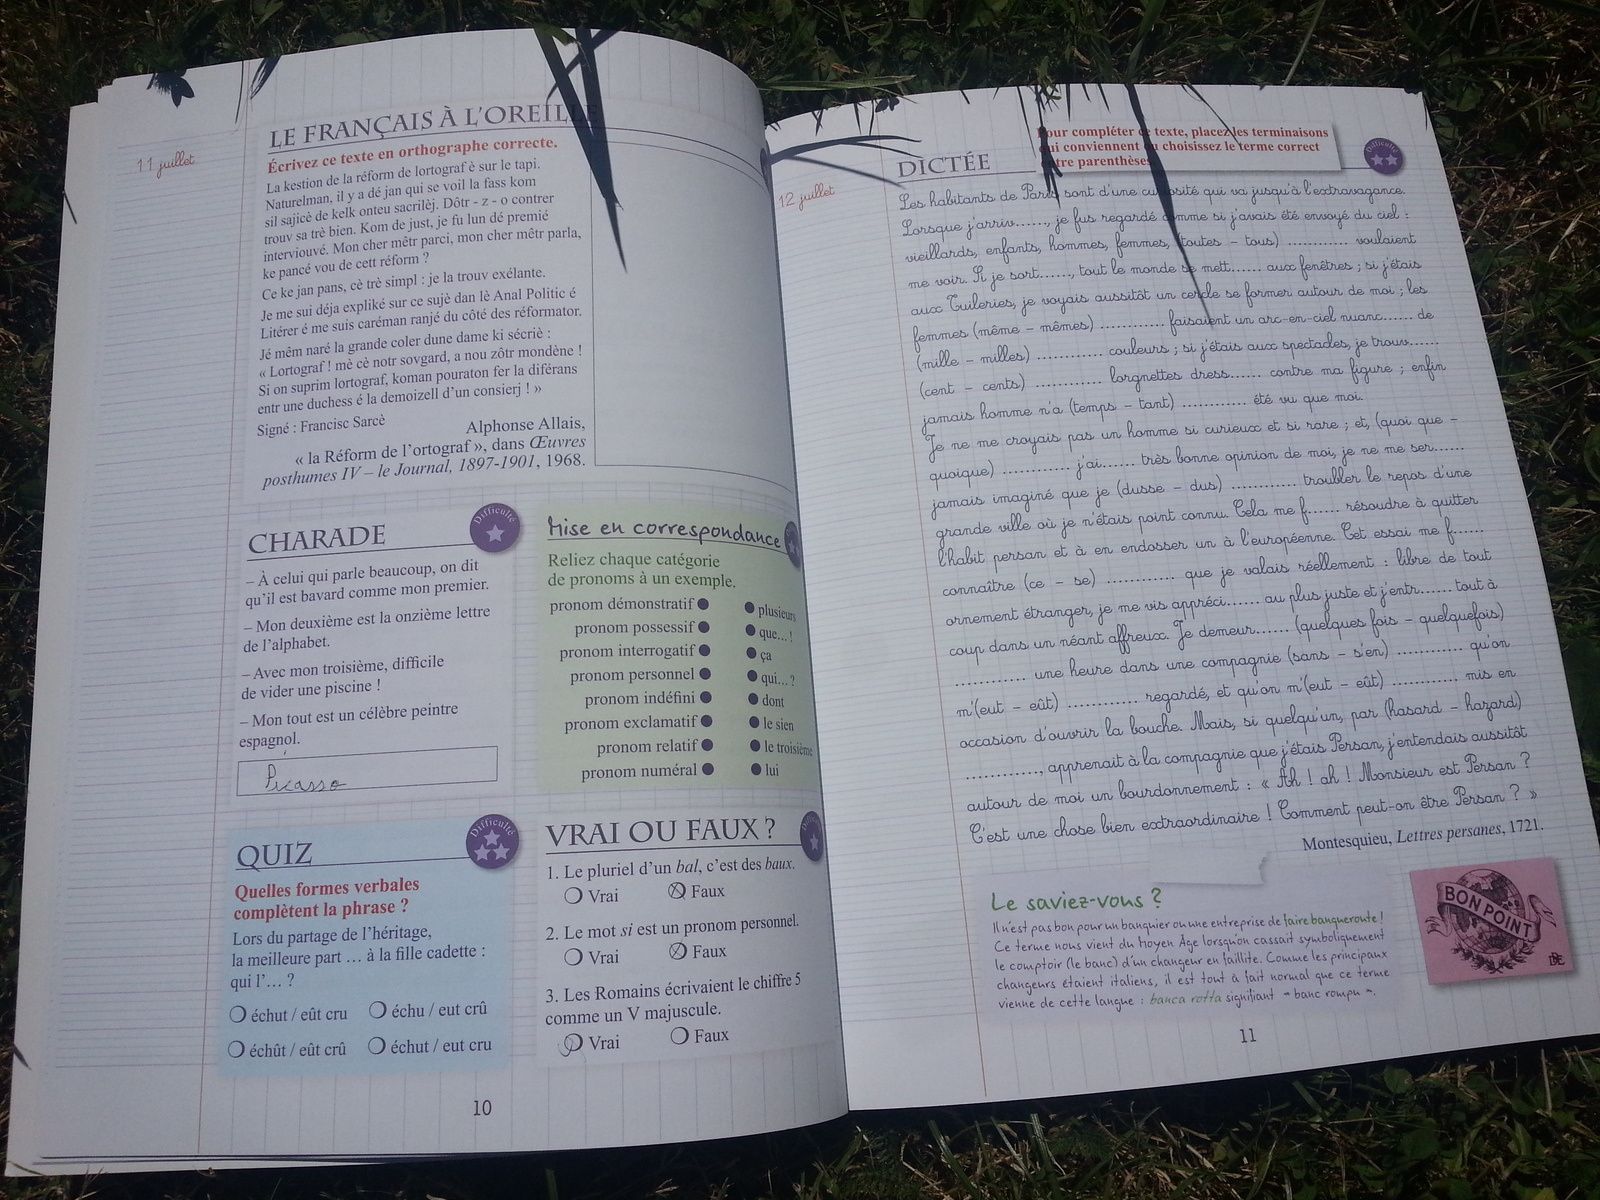 11 juillet
LE FRANÇAIS À L'OREILLE
Écrivez ce texte en orthographe correcte.
La kestion de la réforme de lortograf è sur le tapi.
Naturelman, il y a dé jan qui se voil la fass kom
sil sajicè de kelk onteu sacrilèj. Dôtr - z - o contrer
trouv sa trè bien. Kom de just, je fu lun dé premié
interviouvé. Mon cher mêtr parci, mon cher mêtr parla,
ke pancé vou de cett réform ?
Ce ke jan pans, cè trè simpl : je la trouv exélante.
Je me sui déja expliké sur ce sujè dan lè Anal Politic é
Litérer é me suis caréman ranjé du côté des réformator.
Jé mêm naré la grande coler dune dame ki sécriè :
« Lortograf ! mè cè notr sovgard, a nou zôtr mondène !
Si on suprim lortograf, koman pouraton fer la diférans
entr une duchess é la demoizell d'un consierj ! »
Signé : Francisc Sarcè
Alphonse Allais,
« la Réform de l'ortograf », dans Œuvres
posthumes IV – le Journal, 1897-1901, 1968.
CHARADE
Difficulté
– À celui qui parle beaucoup, on dit
qu'il est bavard comme mon premier.
– Mon deuxième est la onzième lettre
de l'alphabet.
– Avec mon troisième, difficile
de vider une piscine !
– Mon tout est un célèbre peintre
espagnol.
Picasso
Mise en correspondance
Reliez chaque catégorie
de pronoms à un exemple.
pronom démonstratif plusieurs
pronom possessif que... !
pronom interrogatif ça
pronom personnel qui... ?
pronom indéfini dont
pronom exclamatif le sien
pronom relatif le troisième
pronom numéral lui
QUIZ
Difficulté
Quelles formes verbales
complètent la phrase ?
Lors du partage de l'héritage,
la meilleure part ... à la fille cadette :
qui l'... ?
échut / eût cru échu / eut crû
échût / eût crû échut / eut cru
VRAI OU FAUX ?
1. Le pluriel d'un bal, c'est des baux.
Vrai Faux
2. Le mot si est un pronom personnel.
Vrai Faux
3. Les Romains écrivaient le chiffre 5
comme un V majuscule.
Vrai Faux
10
12 juillet
DICTÉE
Pour compléter ce texte, placez les terminaisons
qui conviennent ou choisissez le terme correct
entre parenthèses.
Difficulté
Les habitants de Paris sont d'une curiosité qui va jusqu'à l'extravagance.
Lorsque j'arriv......, je fus regardé comme si j'avais été envoyé du ciel :
vieillards, enfants, hommes, femmes, (toutes – tous) ............ voulaient
me voir. Si je sort......, tout le monde se mett...... aux fenêtres ; si j'étais
aux Tuileries, je voyais aussitôt un cercle se former autour de moi ; les
femmes (même – mêmes) ............ faisaient un arc-en-ciel nuanc...... de
(mille – milles) ............ couleurs ; si j'étais aux spectacles, je trouv......
(cent – cents) ............ lorgnettes dress...... contre ma figure ; enfin
jamais homme n'a (temps – tant) ............ été vu que moi.
Je ne me croyais pas un homme si curieux et si rare ; et, (quoi que –
quoique) ............ j'ai...... très bonne opinion de moi, je ne me ser......
jamais imaginé que je (dusse – dus) ............ troubler le repos d'une
grande ville où je n'étais point connu. Cela me f...... résoudre à quitter
l'habit persan et à en endosser un à l'européenne. Cet essai me f......
connaître (ce – se) ............ que je valais réellement : libre de tout
ornement étranger, je me vis appréci...... au plus juste et j'entr...... tout à
coup dans un néant affreux. Je demeur...... (quelques fois – quelquefois)
............ une heure dans une compagnie (sans – s'en) ............ qu'on
m'(eut – eût) ............ regardé, et qu'on m'(eut – eût) ............ mis en
occasion d'ouvrir la bouche. Mais, si quelqu'un, par (hasard – hazard)
............, apprenait à la compagnie que j'étais Persan, j'entendais aussitôt
autour de moi un bourdonnement : « Ah ! ah ! Monsieur est Persan ?
C'est une chose bien extraordinaire ! Comment peut-on être Persan ? »
Montesquieu, Lettres persanes, 1721.
Le saviez-vous ?
Il n'est pas bon pour un banquier ou une entreprise de faire banqueroute !
Ce terme nous vient du Moyen Âge lorsqu'on cassait symboliquement
le comptoir (le banc) d'un changeur en faillite. Comme les principaux
changeurs étaient italiens, il est tout à fait normal que ce terme
vienne de cette langue : banca rotta signifiant « banc rompu ».
BON POINT
11